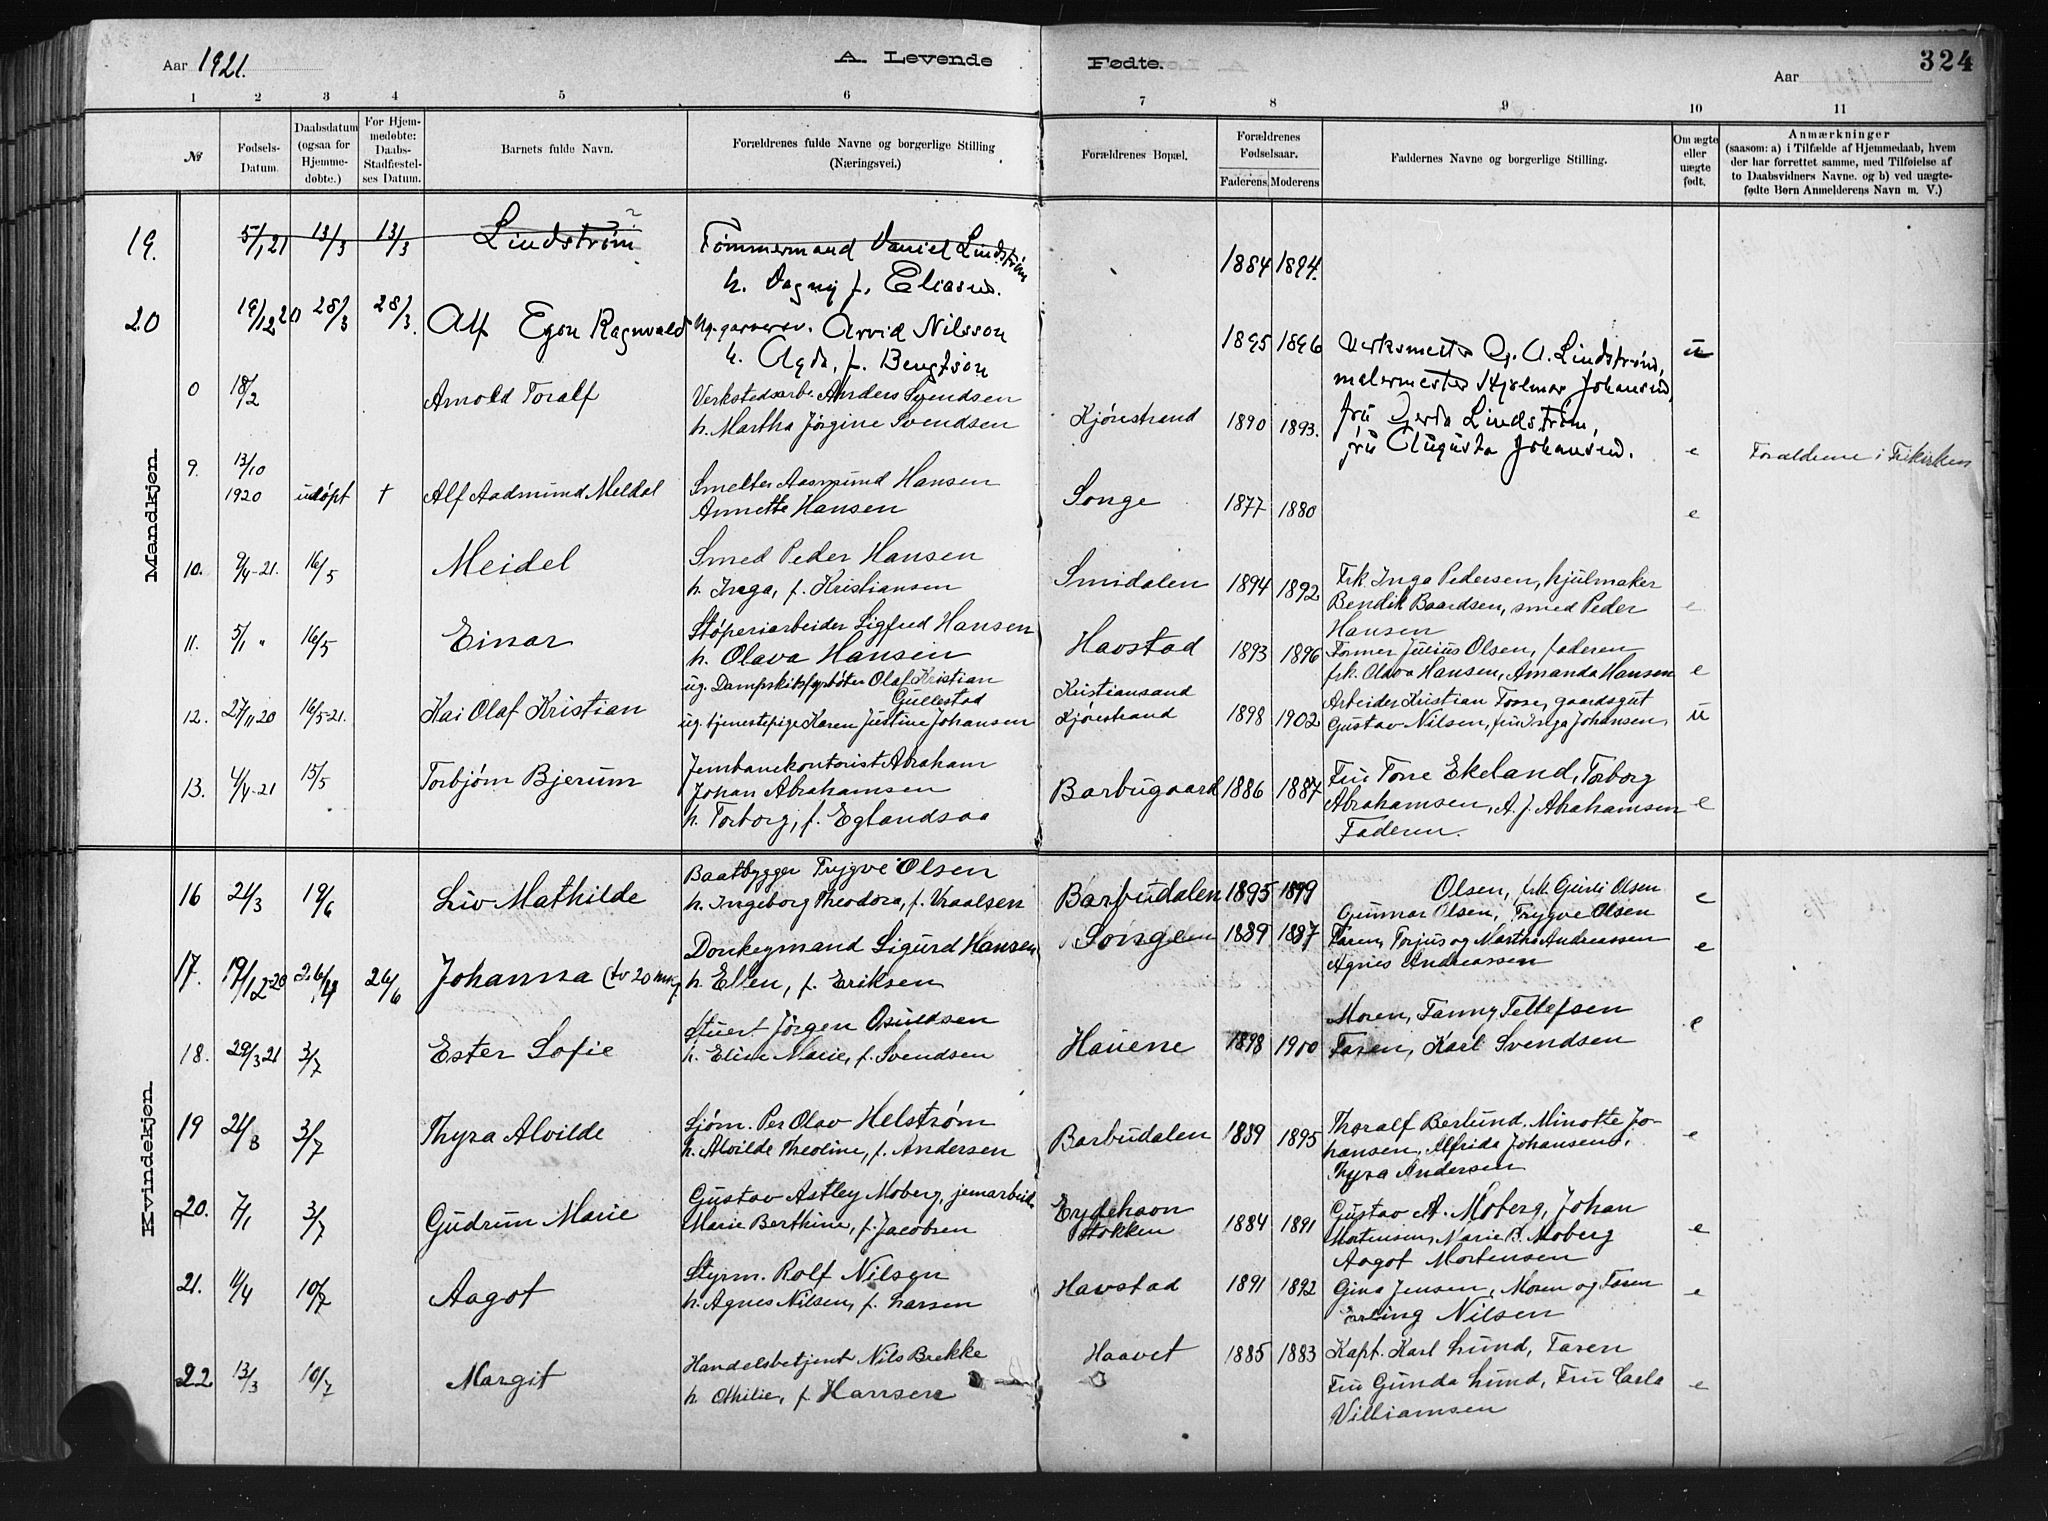 Aar 1921.
A. Levende
Fødte.
324
Aar
1 2 3 4 5 6 7 8 9 10 11
№
Fødsels-
Datum.
Daabsdatum
(ogsaa for
Hjemme-
døbte.)
For Hjem-
medøbte:
Daabs-
Stadfæstel-
ses Datum.
Barnets fulde Navn.
Forældrenes fulde Navne og borgerlige Stilling
(Næringsvei.)
Forældrenes Bopæl.
Forældrenes
Fødselsaar.
Faderens Moderens
Faddernes Navne og borgerlige Stilling.
Om ægte
eller
uægte
født.
Anmærkninger
(saasom: a) i Tilfælde af Hjemmedaab, hvem
der har forrettet samme, med Tilføielse af
to Daabsvidners Navne. og b) ved uægte-
fødte Børn Anmelderens Navn m. V.)
Mandkjøn.
19. 5/1 21 13/3 13/3 Lindstrøm ? Tømmermand Daniel Lindstrøm
h. Dagny f. Eliasen. 1884 1894.
20 19/12 20 28/3 28/3. Alf Egon Ragnvald Ug. garversv. Arvid Nilsson
h. Agda, f. Bengtson 1895 1896 Verksmester G. A. Lindstrøm, u
malermester Hjalmar Johansen,
fru Gerda Lindstrøm,
fru Augusta Johansen.
0 18/2 Arnold Toralf Verkstedsarb. Anders Svendsen
h. Martha Jørgine Svendsen Kjørestrand 1890 1893. e Forældrene i Frikirken
9. 13/10
1920 udøpt + Alf Aadmund Meldal Smelter Aasmund Hansen
Annette Hansen Songe 1877 1880 e
10. 9/4-21. 16/5 Meidel Smed Peder Hansen
h. Inga, f. Kristiansen Smidalen 1894 1892 Frk. Inga Pedersen, hjulmaker
Bendik Baardsen, smed Peder e
Hansen
11. 5/1 " 16/5 Einar Støperiarbeider Sigfred Hansen
h. Olava Hansen Havstad 1893 1896 Former Julius Olsen, faderen
frk. Olava Hansen, Amanda Hansen e
12. 27/11 20 16/5-21. Kai Olaf Kristian ug. Dampskibsfyrbøter Olaf Kristian
Gullestad
ug. tjenestepige Karen Justine Johansen Kristiansand
Kjørestrand 1898 1902 Arbeider Kristian Torse, gaardsgut
Gustav Nilsen, fru Inga Johansen, u
13. 4/4-21 15/5 Torbjørn Bjerum Jernbanekontorist Abraham
Johan Abrahamsen
h. Torborg, f. Eglandsaa Barbugaard 1886 1887 Fru Tone Ekeland, Torborg
Abrahamsen, A. J. Abrahamsen e
Faderen.
Kvindekjøn.
16 24/3 19/6 Liv Mathilde Baatbygger Trygve Olsen
h. Ingeborg Theodora, f. Vraalsen Barbudalen 1895 1899 Olsen, frk. Gurli Olsen e
Gunnar Olsen, Trygve Olsen
17. 19/12-20 26/6 26/6 Johanna (tv 20 min.) Donkeymand Sigurd Hansen
h. Ellen, f. Eriksen Songe 1889 1887 Faren, Torjus og Martha Andreassen e
Agnes Andreassen
18. 29/3 21 3/7 Ester Sofie Stuert Jørgen Osuldsen
h. Elise Marie, f. Svendsen Hauene 1898 1900 Moren, Fanny Tellefsen e
Faren, Karl Svendsen
19 21/3 3/7 Thyra Alvilde Sjøm. Per Olav Helstrøm
h. Alvilde Theoline, f. Andersen Barbudalen 1889 1895 Thoralf Berlund. Minotte Jo-
hansen, Alfrida Johansen, e
Thyra Andersen
20. 7/1 3/7 Gudrun Marie Gustav Astley Moberg, jernarbeid.
Marie Berthine, f. Jacobsen Eydehavn
Stokken 1884 1891 Gustav A. Moberg, Johan
Mortensen, Marie B. Moberg e
Aagot Mortensen
21. 11/4 10/7 Aagot Styrm. Rolf Nilsen
h. Agnes Nilsen, f. Larsen Havstad 1891 1892 Gina Jensen, Moren og Faren e
Erling Nilsen
22 13/3 10/7 Margit Handelsbetjent Nils Brekke
h. Othilie, f. Hansen Haavet 1885 1883 Kapt. Karl Lund, Faren
Fru Gunda Lund, Fru Carla e
Villiamsen